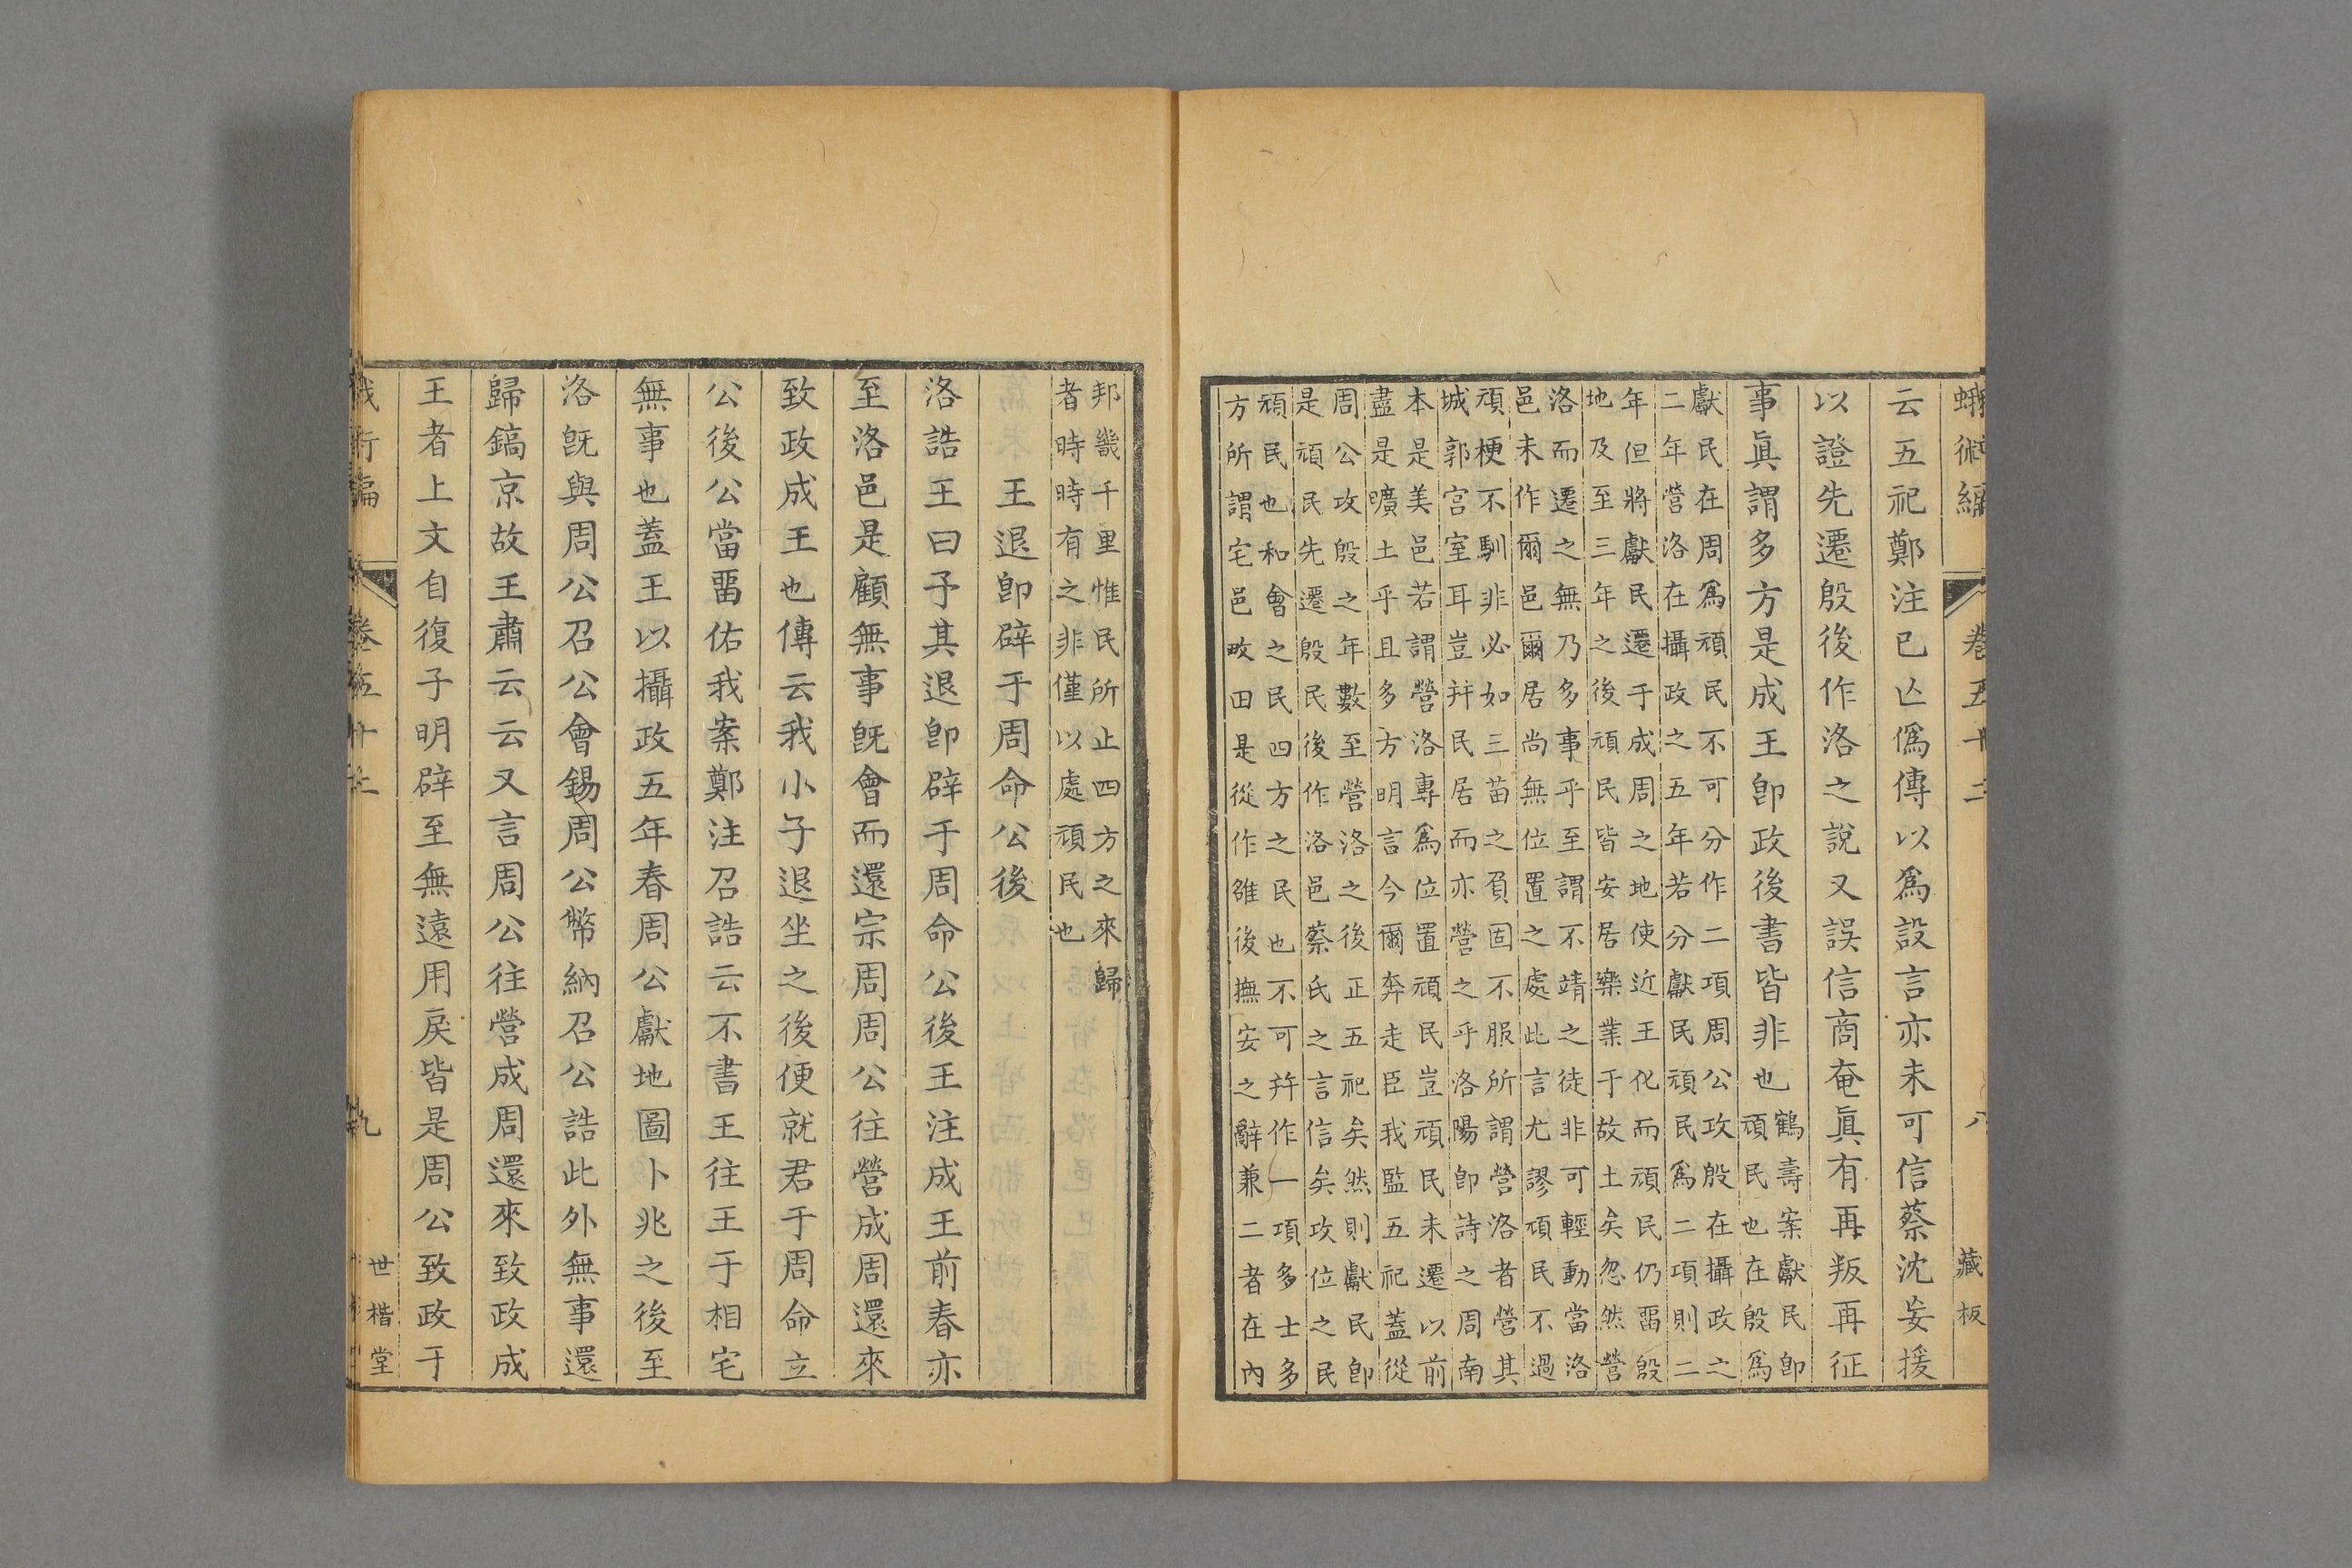 蛾術編 卷五十二 八 藏板
云五祀鄭注已亡僞傳以爲設言亦未可信蔡沈妄援
以證先遷殷後作洛之說又誤信商奄眞有再叛再征
事眞謂多方是成王卽政後書皆非也
鶴壽案獻民卽
頑民也在殷爲
獻民在周爲頑民不可分作二項周公攻殷在攝政之
二年營洛在攝政之五年若分獻民頑民爲二項則二
年但將獻民遷于成周之地使近王化而頑民仍畱殷
地及至三年之後頑民皆安居樂業于故土矣忽然營
洛而遷之無乃多事乎至謂不靖之徒非可輕動當洛
邑未作爾邑爾居尚無位置之處此言尤謬頑民不過
頑梗不馴非必如三苗之負固不服所謂營洛者營其
城郭宮室耳豈并民居而亦營之乎洛陽卽詩之周南
本是美邑若謂營洛專爲位置頑民豈頑民未遷以前
盡是曠土乎且多方明言今爾奔走臣我監五祀蓋從
周公攻殷之年數至營洛之後正五祀矣然則獻民卽
是頑民先遷殷民後作洛邑蔡氏之言信矣攻位之民
頑民也和會之民四方之民也不可并作一項多士多
方所謂宅邑畋田是從作雒後撫安之辭兼二者在內
邦畿千里惟民所止四方之來歸
者時時有之非僅以處頑民也
王退卽辟于周命公後
洛誥王曰予其退卽辟于周命公後王注成王前春亦
至洛邑是顧無事旣會而還宗周周公往營成周還來
致政成王也傳云我小子退坐之後便就君于周命立
公後公當畱佑我案鄭注召誥云不書王往王于相宅
無事也蓋王以攝政五年春周公獻地圖卜兆之後至
洛旣與周公召公會錫周公幣納召公誥此外無事還
歸鎬京故王肅云云又言周公往營成周還來致政成
王者上文自復子明辟至無遠用戾皆是周公致政于
蛾術編 卷五十二 九 世楷堂